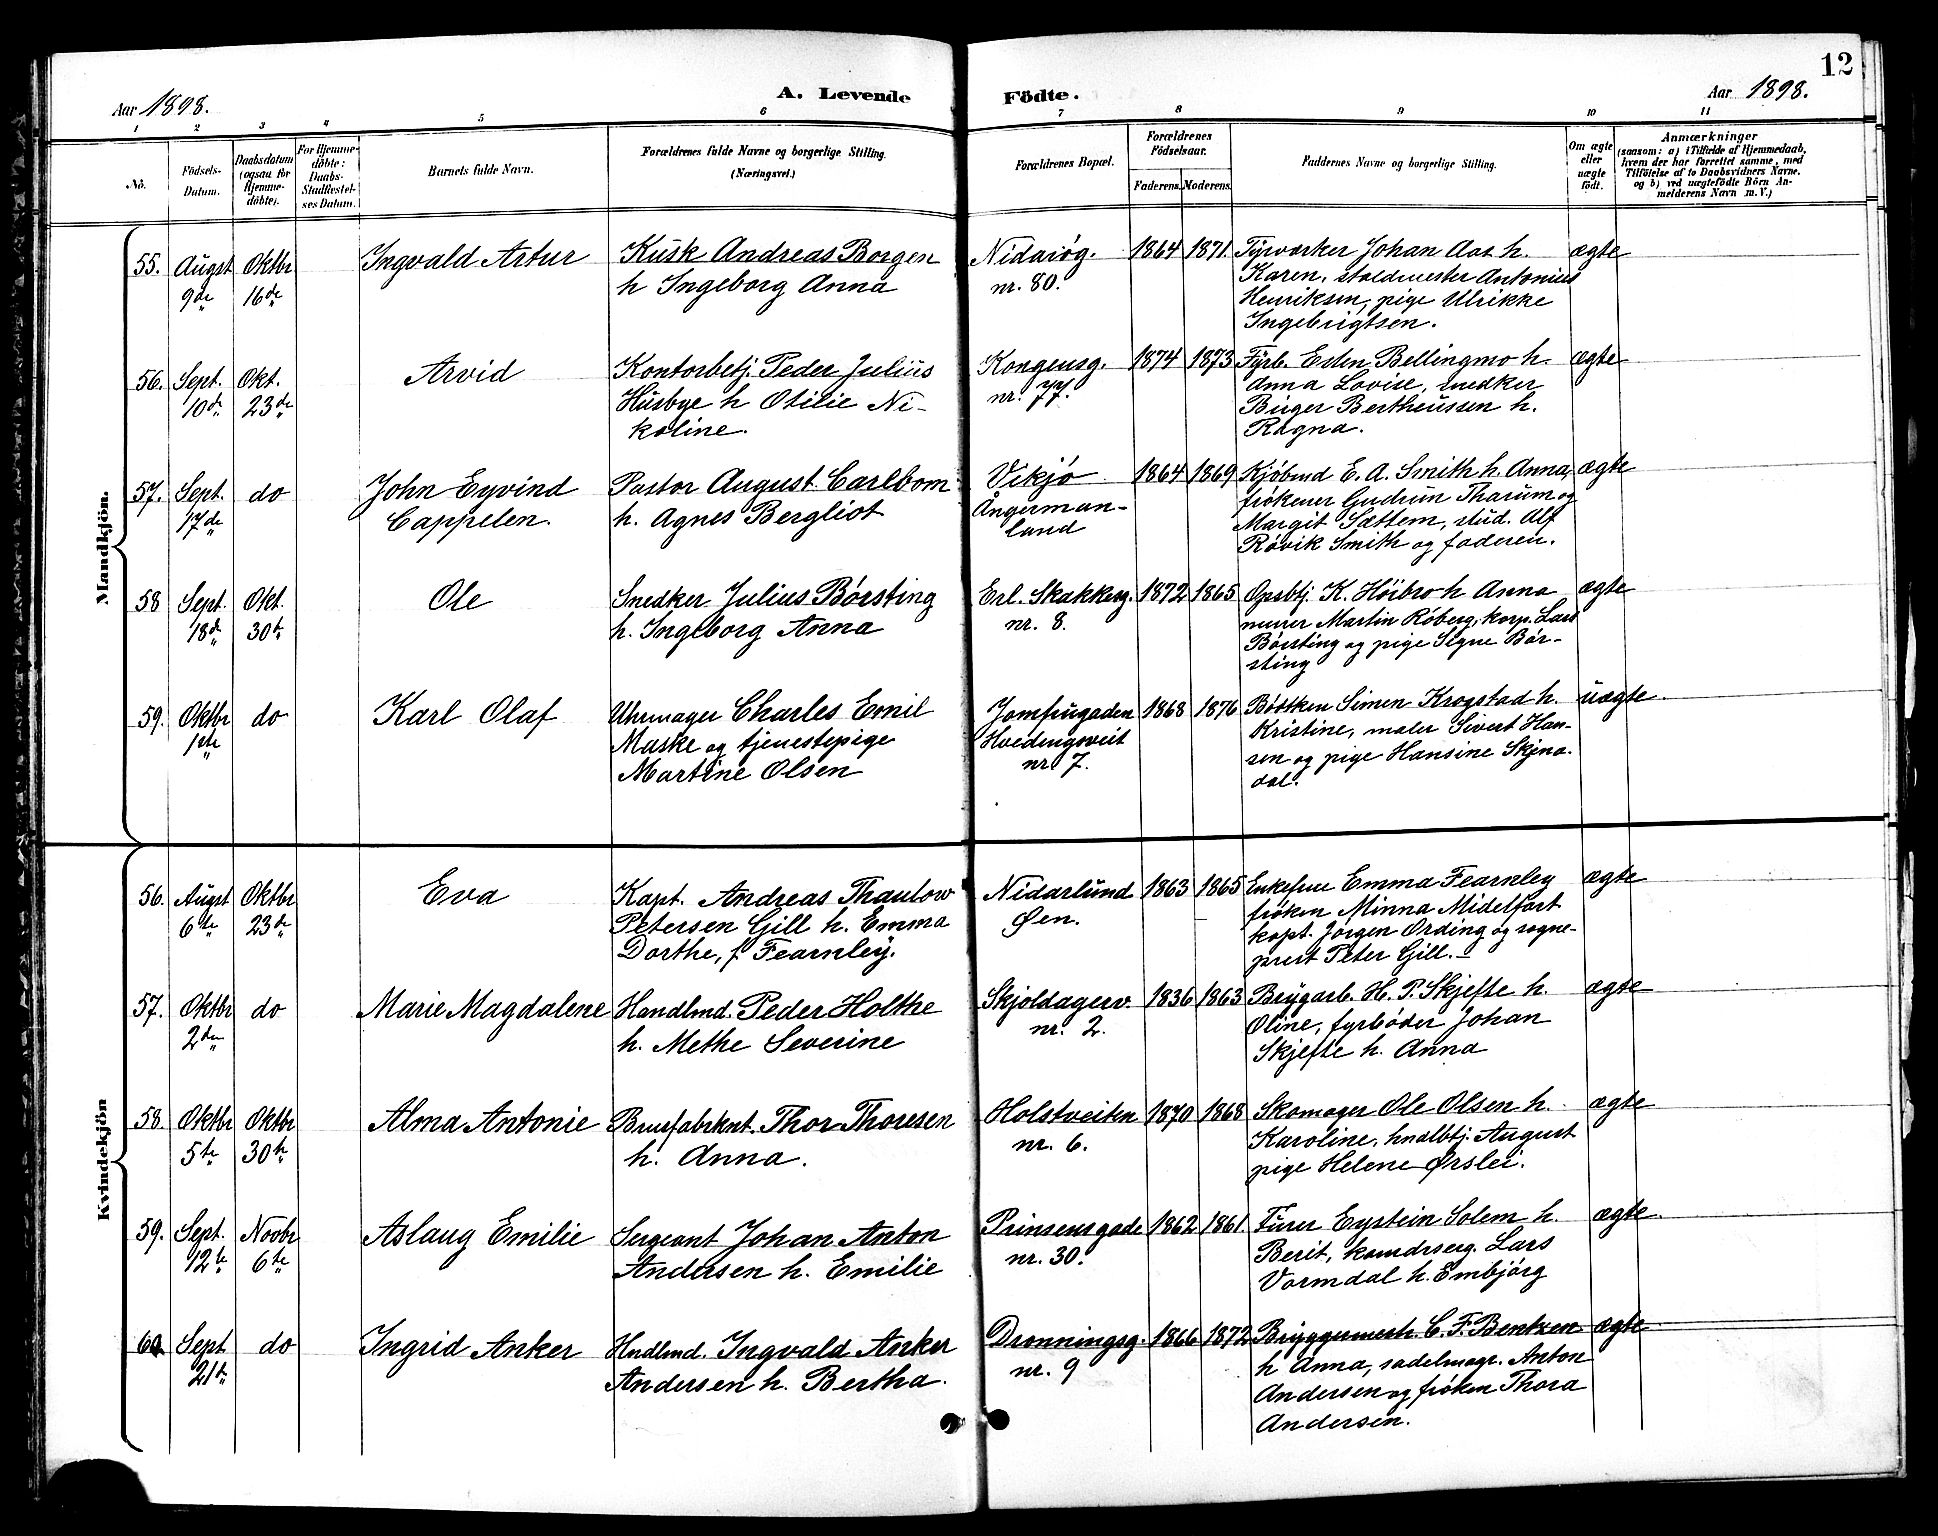 12
Aar 1898.
A. Levende
Födte.
Aar 1898.
1 2 3 4 5 6 7 8 9 10 11
No.
Födsels-
Datum.
Daabsdatum
(ogsaa for
Hjemme-
döbte).
For Hjemme-
döbte:
Daabs-
Stadfæstel-
ses Datum.
Barnets fulde Navn.
Forældrenes fulde Navne og borgerlige Stilling.
(Næringsvei.)
Forældrenes Bopæl.
Forældrenes
Födselsaar.
Faderens. Moderens.
Faddernes Navne og borgerlige Stilling.
Om ægte
eller
uægte
födt.
Anmærkninger
(saasom: a) i Tilfælde af Hjemmedaab,
hvem der har forrettet samme, med
Tilföielse af to Daabsvidners Navne.
og b) ved uægtefödte Börn An-
melderens Navn m. V.)
Mandkjön.
55. Augst 9de
Oktbr 16de
Ingvald Artur
Kusk Andreas Borgen
h Ingeborg Anna
Nidaróg.
nr. 80.
1864 1871.
Fyrværker Johan Aas h.
Karen, staldmester Antonius
Henriksen, pige Ulrikke
Ingebrigtsen.
ægte
56. Sept. 10de
Okt. 23de
Arvid
Kontorbetj. Peder Julius
Husbye h Otilie Ni-
koline.
Kongensg.
nr. 77.
1874 1873
Fyrb. Esten Bellingmo h.
Anna Lovise, snedker
Birger Bertheussen h.
Ragna.
ægte
57. Sept. 17de
do
John Eyvind
Cappelen.
Pastor August Carlbom
h. Agnes Bergliot
Vikjö
Ångerman-
land
1864 1869
Kjöbmd E. A. Smith h. Anna,
frökener Gudrun Tharum og
Margit Sættem, stud. Alf
Rövik Smith og faderen.
ægte
58 Sept. 18de
Okt. 30te
Ole
Snedker Julius Börsting
h. Ingeborg Anna
Erl. Skakkesg.
nr. 8.
1872 1865
Opsbtj. K. Höibro h Anna
murer Martin Röberg, korp. Lars
Börsting og pige Signe Bör-
sting
ægte
59. Oktbr 1ste
do
Karl Olaf
Uhrmager Charles Emil
Maske og tjenestepige
Martine Olsen
Jomfrugaden
Hvedingsveit
nr. 7.
1868 1876
Bödtken Simen Krogstad h.
Kristine, maler Sivert Han-
sen og pige Hansine Skjna-
dal.
uægte
Kvindekjön
56. Augst 6te
Oktbr 23de
Eva
Kapt. Andreas Thaulow
Petersen Gill h. Emma
Dorthe, f. Fearnley.
Nidarlund
Øen.
1863 1865
Enkefrue Emma Fearnley
fröken Minna Midelfart
kapt. Jörgen Ording og sogne-
prest Peter Gill.
ægte
57. Oktbr 2den
do
Marie Magdalene
Handlmd. Peder Holthe
h. Methe Severine
Skjoldagerv.
nr. 2.
1836 1863
Brygarb. H. P. Skjefte h.
Oline, fyrböder Johan
Skjefte h. Anna
ægte
58. Oktbr 5te
Oktbr 30te
Alma Antonie
Brusfabrknt. Thor Thoresen
h. Anna.
Holstveiten
nr. 6.
1870 1868
Skomager Ole Olsen h.
Karoline, hndlbtj. August
pige Helene Ørslei.
ægte
59. Sept. 12te
Novbr 6te
Aslaug Emilie
Sergeant Johan Anton
Andersen h. Emilie
Prinsensgade
nr. 30.
1862 1861
Furer Eystein Solem h.
Berit, komdrserg. Lars
Vormdal h. Embjörg
ægte
60 Sept 21de
do
Ingrid Anker
Hndlmd. Ingvald Anker
Andersen h. Bertha.
Dronningsg.
nr. 9
1866 1872
Bryggermest. C. F. Bentzen
h Anna, sadelmagr. Anton
Andersen og fröken Thora
Andersen.
ægte